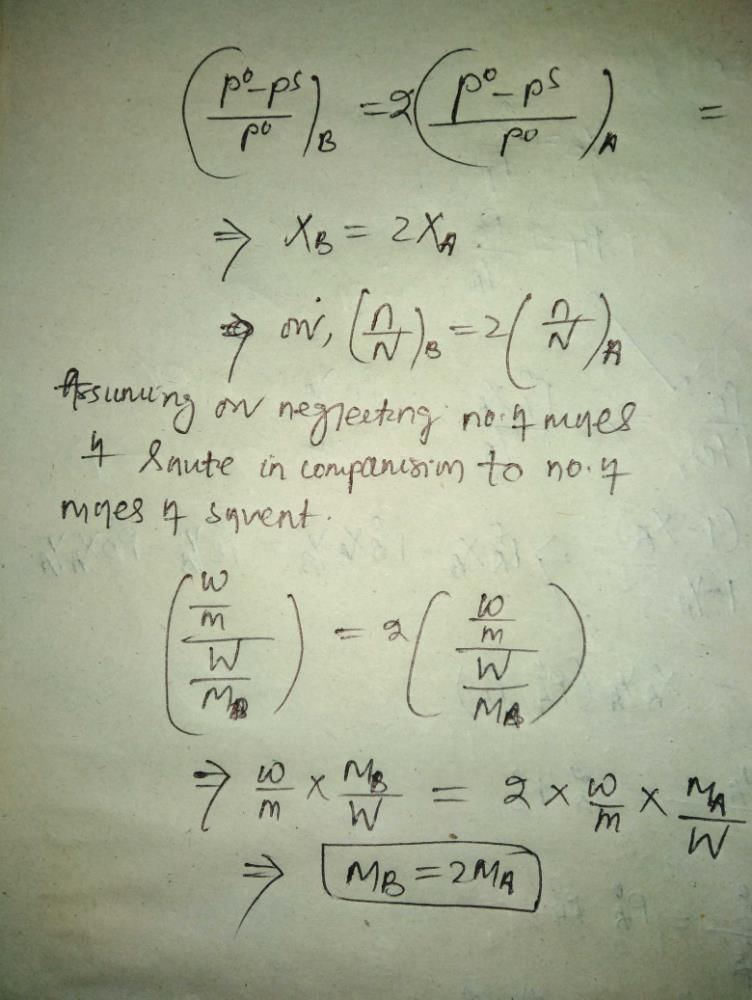 (p⁰-pˢ/p⁰)B = 2(p⁰-pˢ/p⁰)A =
⇒ XB = 2XA
⇒ or, (n/N)B = 2(n/N)A
Assuming or neglecting no. of moles
of solute in comparision to no. of
moles of solvent.
((w/m)/(W/MB)) = 2((w/m)/(W/MA))
⇒ w/m × MB/W = 2 × w/m × MA/W
⇒ MB = 2MA